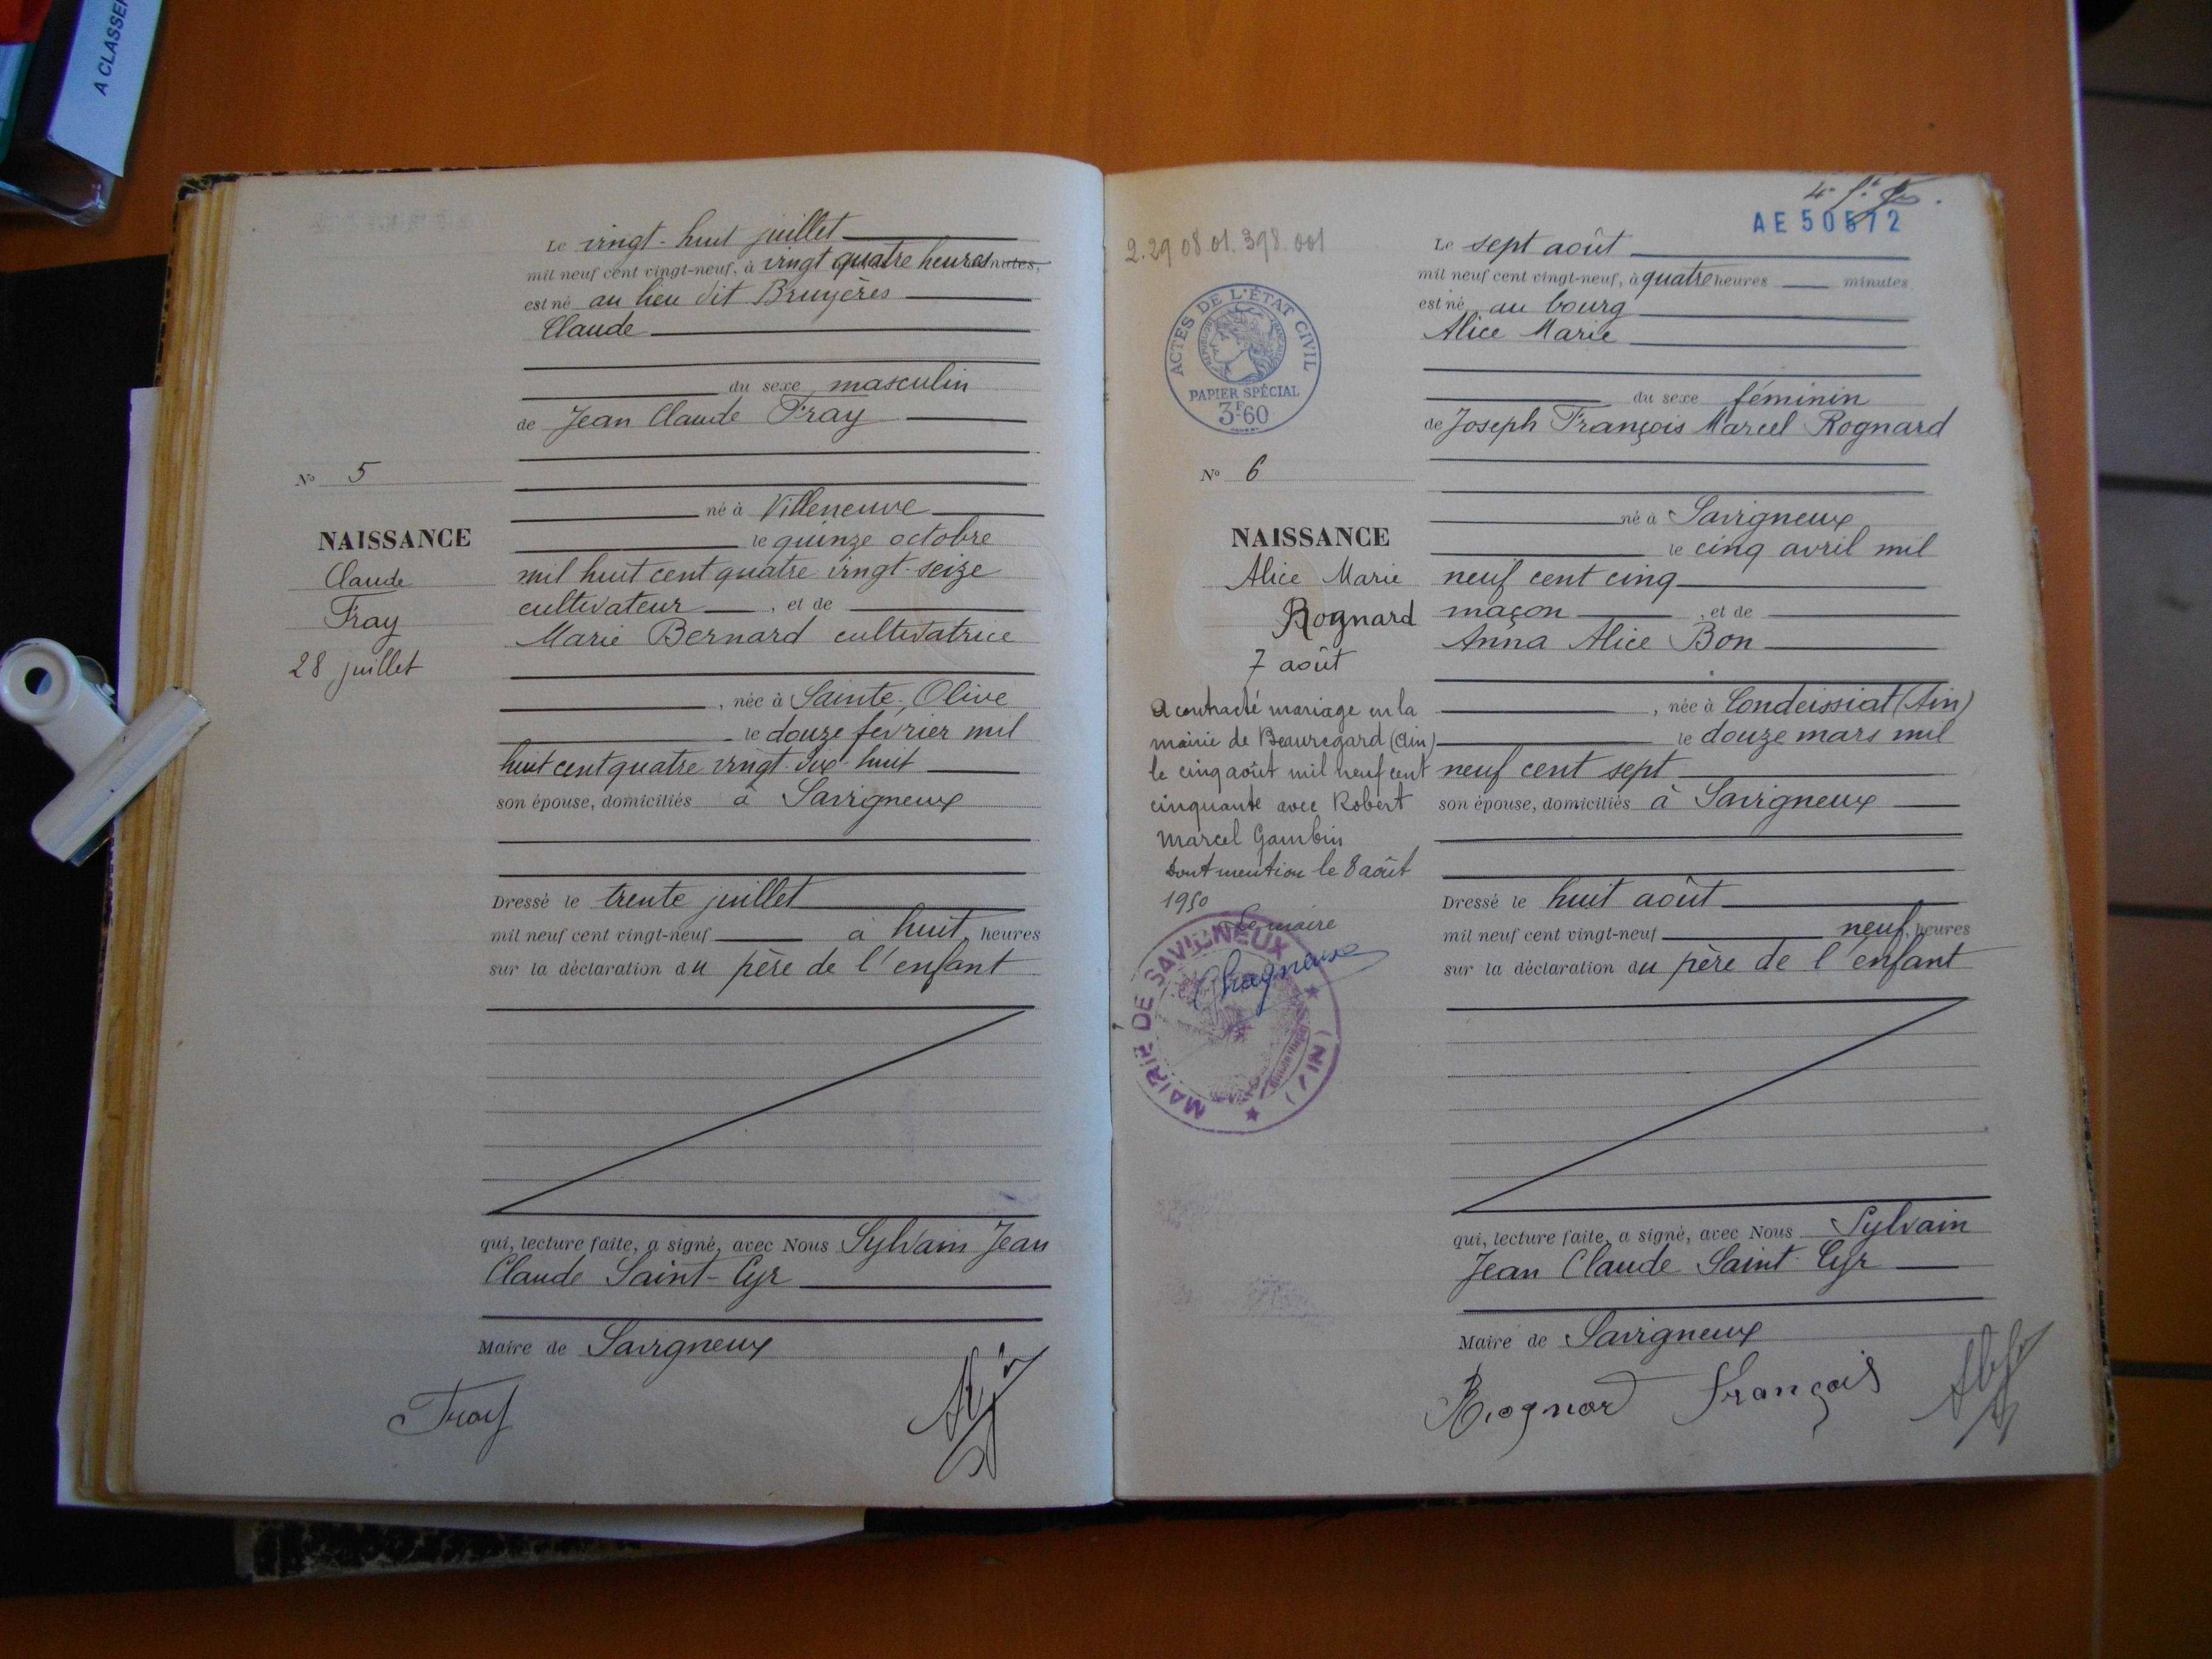 A CLASSER
Le vingt-huit juillet
mil neuf cent vingt-neuf, à vingt quatre heures
est né au lieu dit Bruyères
Claude
du sexe masculin
de Jean Claude Fray
N° 5
né à Villeneuve
NAISSANCE
le quinze octobre
Claude
mil huit cent quatre vingt-seize
Fray
cultivateur, et de
28 juillet
Marie Bernard cultivatrice
, née à Sainte-Olive
le douze février mil
huit cent quatre vingt-dix-huit
son épouse, domiciliés à Savigneux
Dressé le trente juillet
mil neuf cent vingt-neuf à huit heures
sur la déclaration du père de l'enfant
qui, lecture faite, a signé, avec Nous Sylvain Jean
Claude Saint-Cyr
Maire de Savigneux
Fray
AE 50572
2.29 08 01.398.001
Le sept août
mil neuf cent vingt-neuf, à quatre heures minutes
est né au bourg
Alice Marie
ACTES DE L'ÉTAT CIVIL
RÉPUBLIQUE FRANÇAISE
PAPIER SPÉCIAL
3F60
du sexe féminin
de Joseph François Marcel Rognard
N° 6
né à Savigneux
NAISSANCE
le cinq avril mil
Alice Marie
neuf cent cinq
Rognard
maçon, et de
7 août
Anna Alice Bon
, née à Condeissiat (Ain)
le douze mars mil
neuf cent sept
son épouse, domiciliés à Savigneux
A contracté mariage en la
mairie de Beauregard (Ain)
le cinq août mil neuf cent
cinquante avec Robert
Marcel Gambin
Dont mention le 8 août
1950
Le maire
Chagneux
MAIRIE DE SAVIGNEUX
(AIN)
Dressé le huit août
mil neuf cent vingt-neuf neuf heures
sur la déclaration du père de l'enfant
qui, lecture faite, a signé, avec Nous Sylvain
Jean Claude Saint-Cyr
Maire de Savigneux
Rognard François